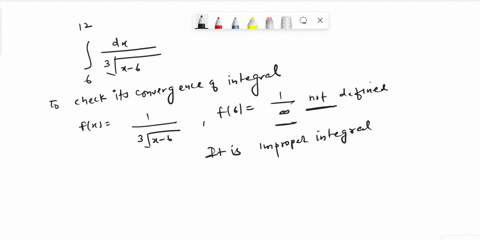 12
∫ dx / ∛(x-6)
6
To check its convergence of integral
f(x) = 1 / ∛(x-6) , f(6) = 1/∞ not defined
It is improper integral